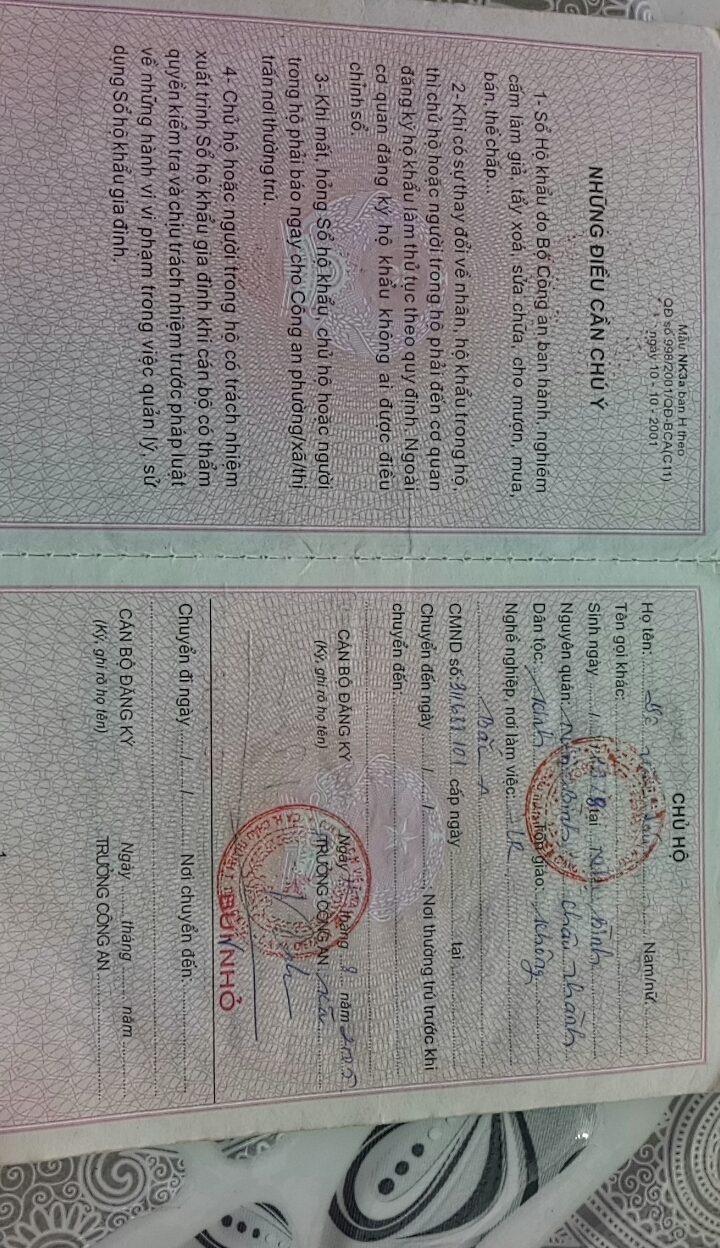 Mẫu NK3a ban H theo
QĐ số 998/2001/QĐ-BCA(C11)
ngày 10 - 10 - 2001
NHỮNG ĐIỀU CẦN CHÚ Ý
1- Sổ Hộ khẩu do Bố Công an ban hành, nghiêm
cấm làm giả, tẩy xoá, sửa chữa, cho mượn, mua,
bán, thế chấp...
2- Khi có sự thay đổi về nhân, hộ khẩu trong hộ,
thì chủ hộ hoặc người trong hộ phải đến cơ quan
đăng ký hộ khẩu làm thủ tục theo quy định. Ngoài
cơ quan đăng ký hộ khẩu không ai được điều
chỉnh sổ.
3- Khi mất, hỏng Sổ hộ khẩu, chủ hộ hoặc người
trong hộ phải báo ngay cho Công an phường/xã/thị
trấn nơi thường trú.
4- Chủ hộ hoặc người trong hộ có trách nhiệm
xuất trình Sổ hộ khẩu gia đình khi cán bộ có thẩm
quyền kiểm tra và chịu trách nhiệm trước pháp luật
về những hành vi vi phạm trong việc quản lý, sử
dụng Sổ hộ khẩu gia đình.
CHỦ HỘ
Họ tên: Nam/nữ:
Tên gọi khác:
Sinh ngày / / tại Bình
Nguyên quán: Bình Châu Thành
Dân tộc: Kinh Tôn giáo: Không
Nghề nghiệp, nơi làm việc: LR
Bắc A
CMND số: 311657101 cấp ngày tại
Chuyển đến ngày / / Nơi thường trú trước khi
chuyển đến:
Ngày tháng 8 năm 2005
CÁN BỘ ĐĂNG KÝ TRƯỞNG CÔNG AN xã
(Ký, ghi rõ họ tên)
NHỎ
Chuyển đi ngày / / Nơi chuyển đến:
Ngày tháng năm
CÁN BỘ ĐĂNG KÝ TRƯỞNG CÔNG AN
(Ký, ghi rõ họ tên)
1